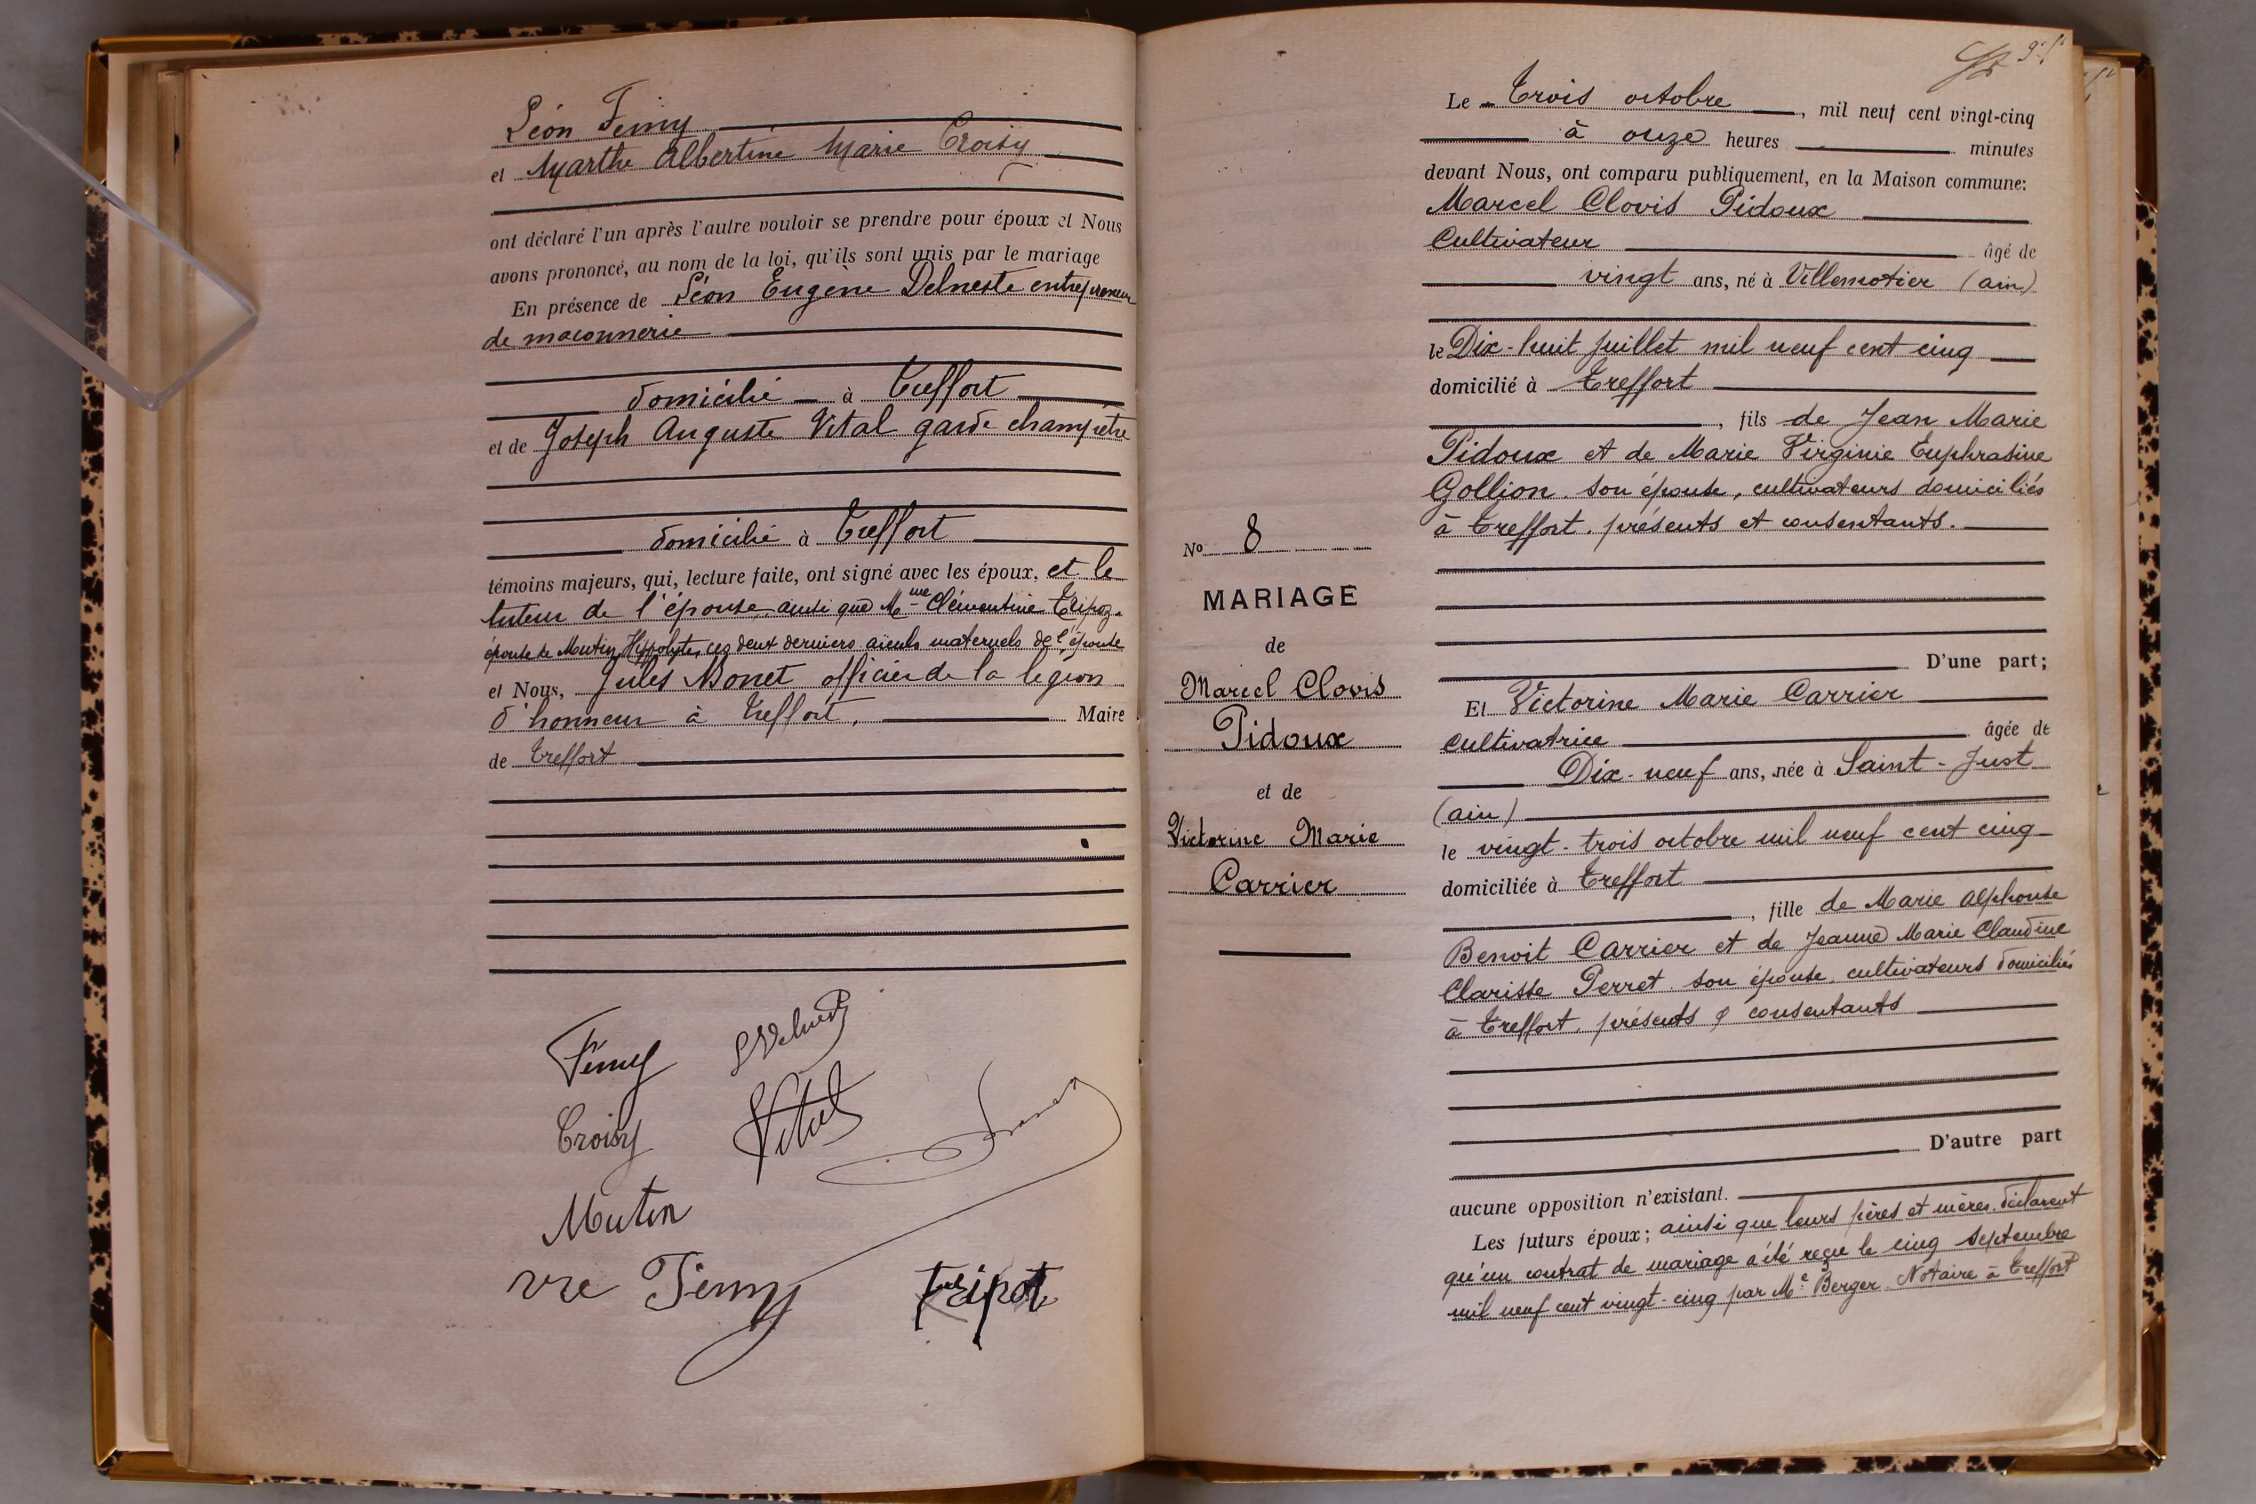 Léon Femy
et Marthe Albertine Marie Croisy
ont déclaré l'un après l'autre vouloir se prendre pour époux et Nous
avons prononcé, au nom de la loi, qu'ils sont unis par le mariage
En présence de Léon Eugène Delneste entrepreneur
de maconnerie
domicilié à Treffort
et de Joseph Auguste Vital garde champêtre
domicilié à Treffort
témoins majeurs, qui, lecture faite, ont signé avec les époux, et le
tuteur de l'épouse, ainsi que Mme Clémentine Tripoz
épouse de Mutin Hippolyte, ces deux derniers aïeuls maternels de l'épouse
et Nous, Jules Monet officier de la légion
d'honneur à Treffort, Maire
de Treffort
Femy
Croisy Vital
Mutin
vve Femy tripot
Le Trois octobre, mil neuf cent vingt-cinq
à onze heures minutes
devant Nous, ont comparu publiquement, en la Maison commune:
Marcel Clovis Pidoux
Cultivateur âgé de
vingt ans, né à Villemotier (ain)
le Dix-huit Juillet mil neuf cent cinq
domicilié à Treffort
, fils de Jean Marie
Pidoux et de Marie Virginie Euphrasine
Gollion. son épouse, cultivateurs domiciliés
à Treffort. présents et consentants.
D'une part;
No 8
MARIAGE
de
Marcel Clovis
Pidoux
et de
Victorine Marie
Carrier
Et Victorine Marie Carrier
cultivatrice âgée de
Dix-neuf ans, née à Saint-Just
(ain)
le vingt-trois octobre mil neuf cent cinq
domiciliée à Treffort
, fille de Marie Alphonse
Benoit Carrier et de Jeanne Marie Claudine
Clarisse Perret. son épouse. cultivateurs domiciliés
à Treffort. présents & consentants
D'autre part
aucune opposition n'existant.
Les futurs époux; ainsi que leurs pères et mères. déclarent
qu'un contrat de mariage a été reçu le cinq septembre
mil neuf cent vingt-cinq par Me Berger. Notaire à Treffort